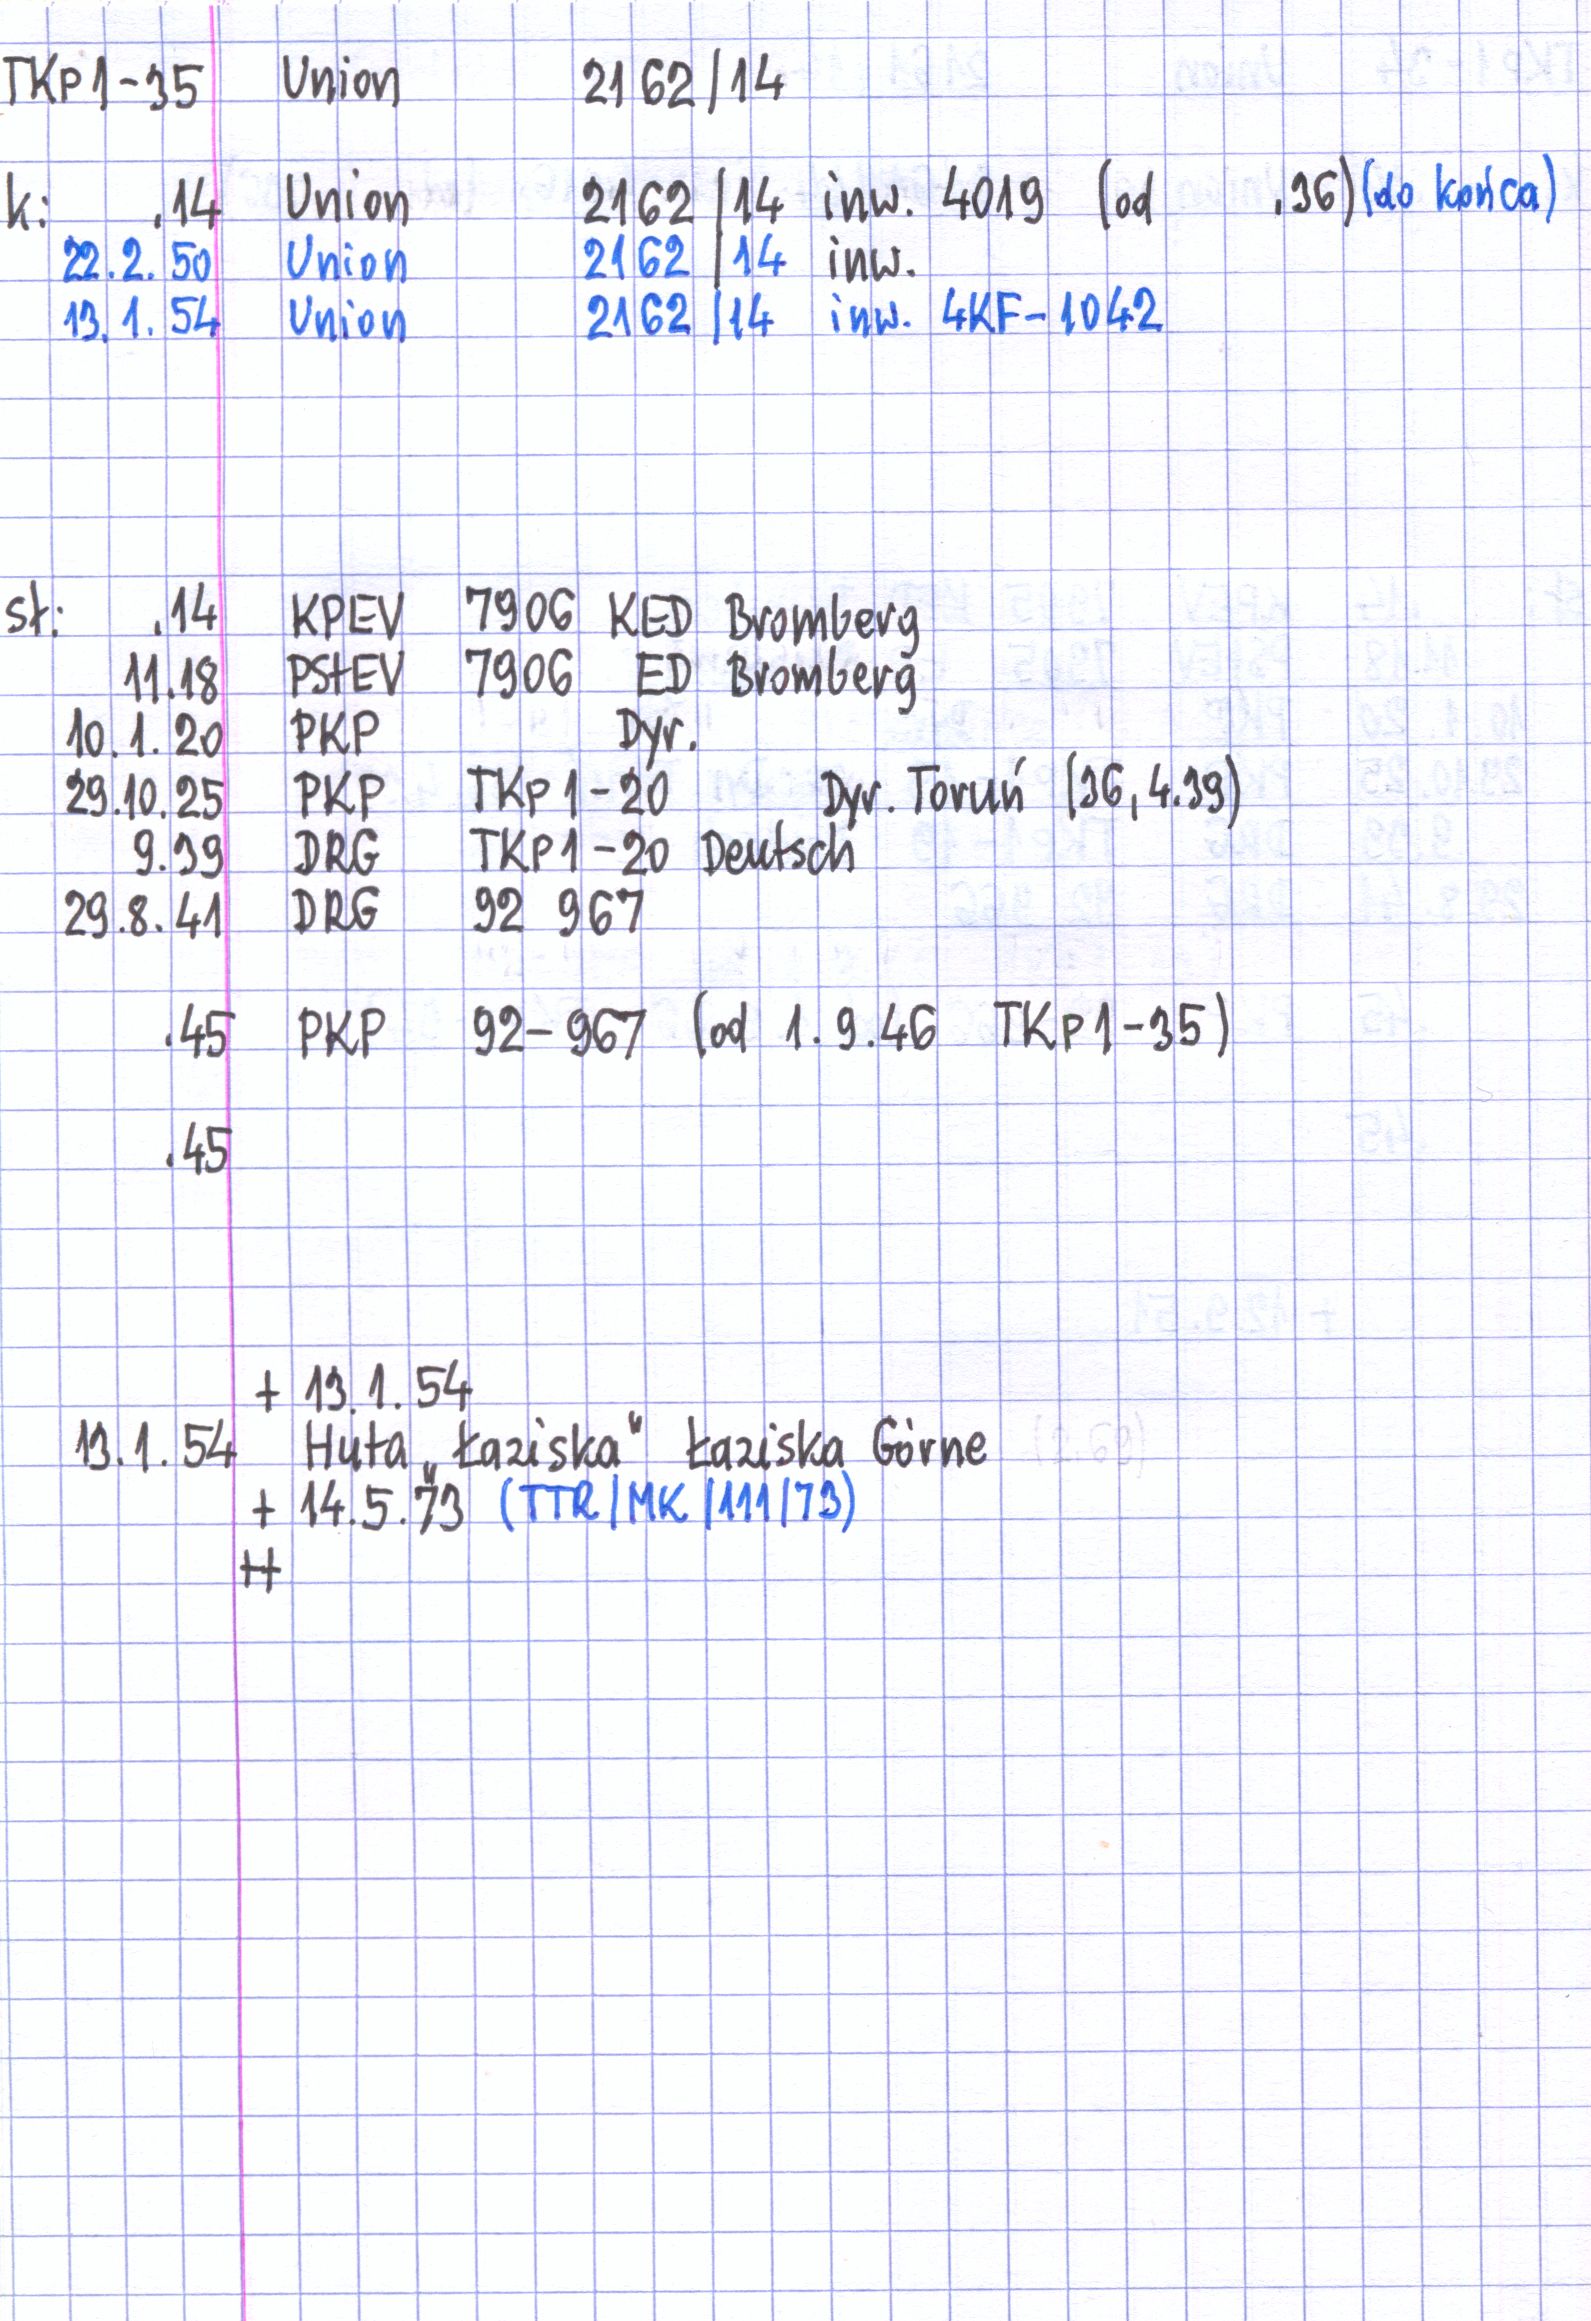 TKp1-35 Union 2162/14
k: .14 Union 2162/14 inw. 4019 (od .36) (do końca)
22.2.50 Union 2162/14 inw.
13.1.54 Union 2162/14 inw. 4KF-1042
st: .14 KPEV 7906 KED Bromberg
11.18 PStEV 7906 ED Bromberg
10.1.20 PKP Dyr.
29.10.25 PKP TKp1-20 Dyr. Toruń (36, 4.39)
9.39 DRG TKp1-20 Deutsch
29.8.41 DRG 92 967
.45 PKP 92-967 (od 1.9.46 TKp1-35)
.45
+ 13.1.54
13.1.54 Huta „Łaziska" Łaziska Górne
+ 14.5.73 (TTR/MK/111/73)
++